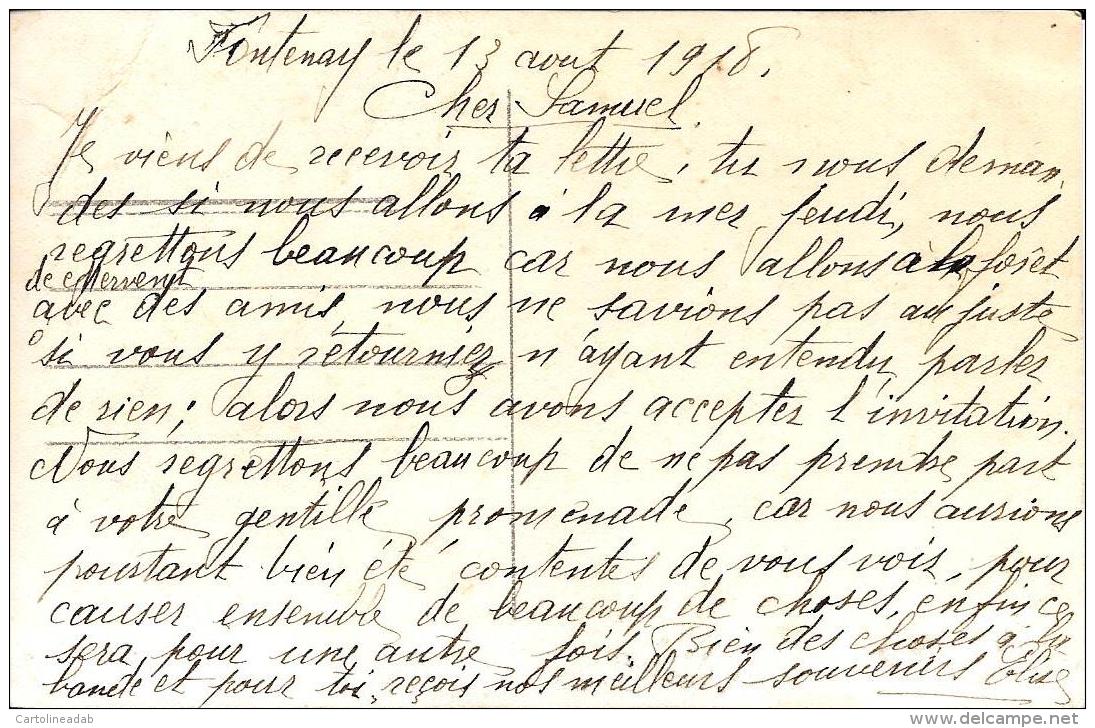 Fontenay le 13 aout 1918.
Cher Samuel.
Je viens de recevoir ta lettre, tu nous deman
des si nous allons à la mer jeudi, nous
regrettons beaucoup car nous allons à la forêt
de
avec des amis, nous ne savions pas au juste
si vous y retourniez n'ayant entendu parler
de rien; alors nous avons accepter l'invitation.
Nous regrettons beaucoup de ne pas prendre part
à votre gentille promenade, car nous aurions
pourtant bien été contentes de vous voir, pour
causer ensemble de beaucoup de choses, enfin ce
sera pour une autre fois. Bien des choses à la
bande et pour toi, reçois nos meilleurs souvenirs Elise
© Cartolineadab
delcampe.net